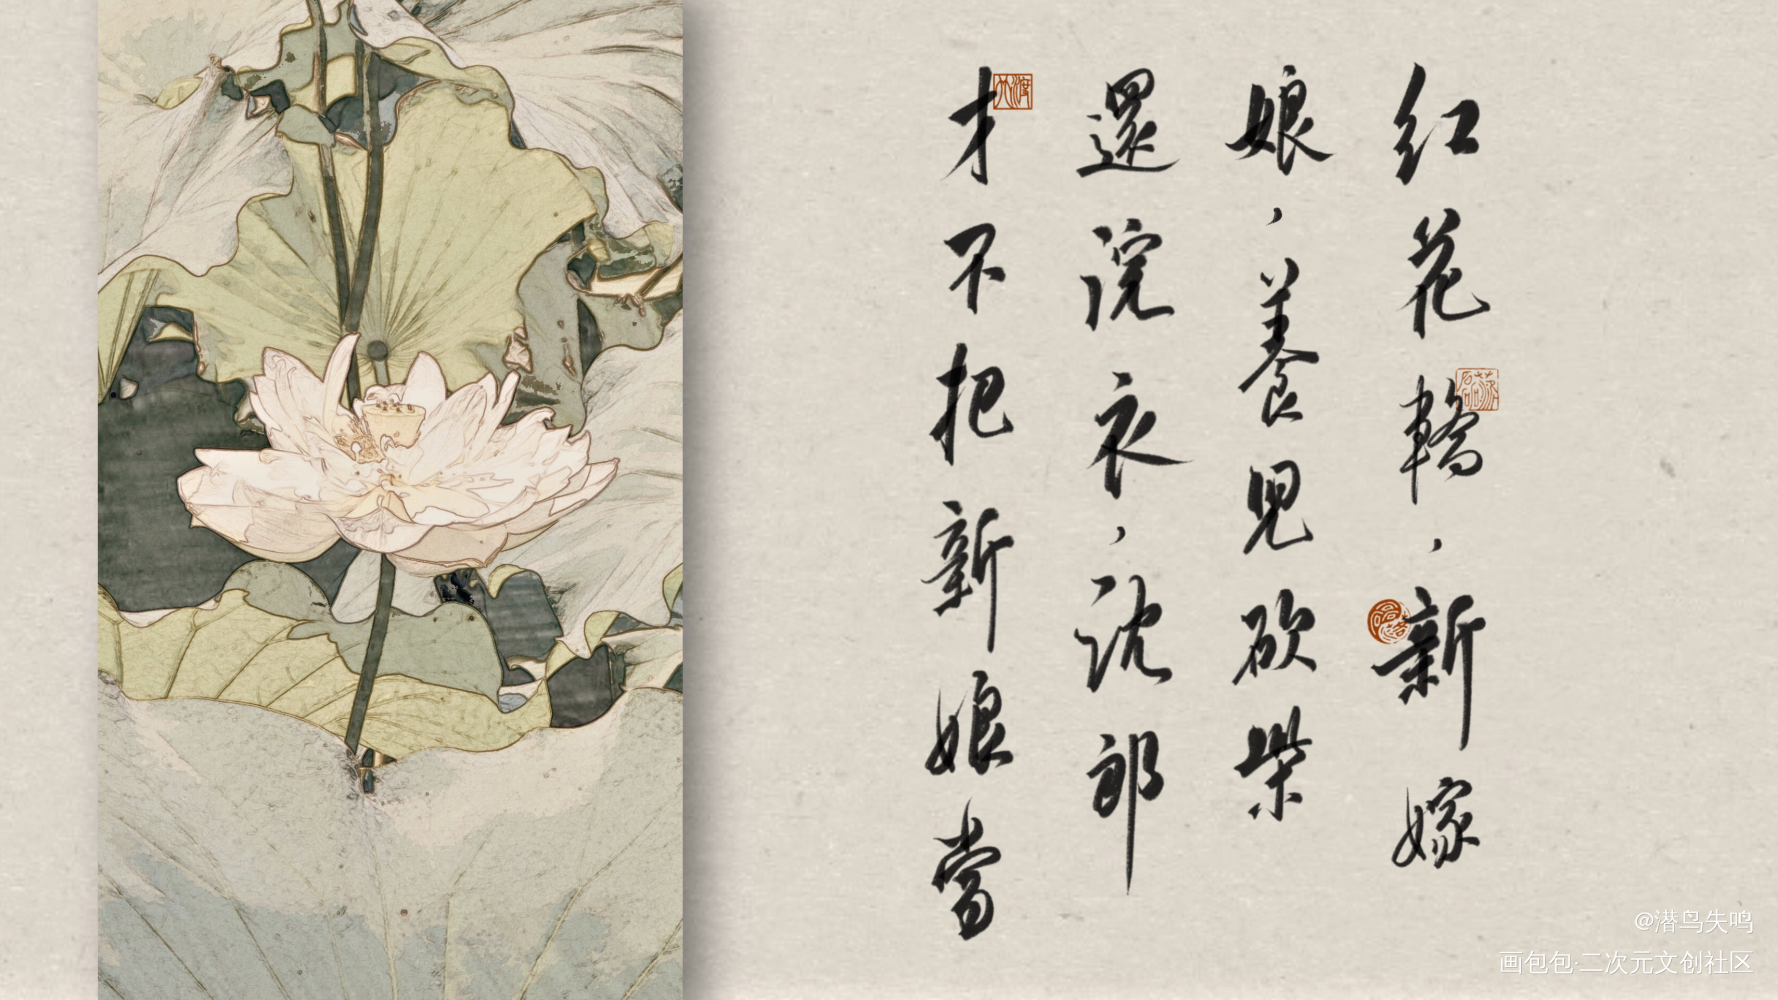 红花轎，新嫁
娘，養兒砍柴
還浣衣，沈郎
才不把新娘當
@潜鸟失鸣
画包包·二次元文创社区